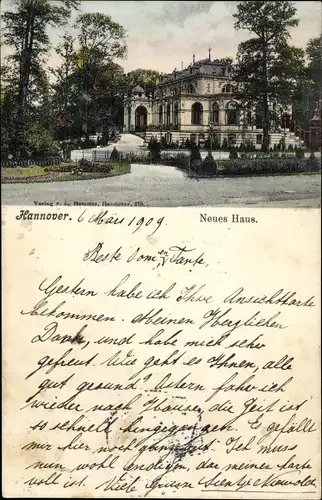 Verlag v. L. Hemmer, Hannover. 279.
Hannover. 6 März 1909
Neues Haus.
Beste Oom en Tante.
Gestern habe ich Ihre Ansichtkarte
bekommen. Meinen Herzlichen
Dank, und habe mich sehr
gefreut. Wie geht es Ihnen, alle
gut gesund? Ostern fahr ich
wieder nach Hause, die Zeit ist
so schnell hingegangen. Es gefällt
mir hier noch ganz gut. Ich muss
nun wohl endigen, da meiner Karte
voll ist. Viele Grüsse